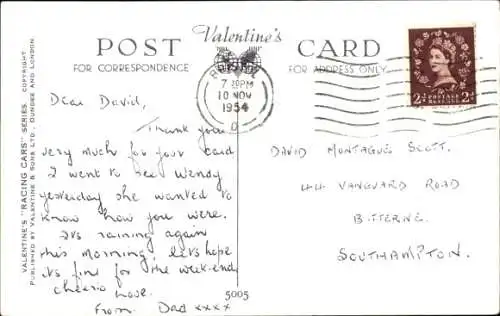 Valentine's
POST CARD
FOR CORRESPONDENCE
FOR ADDRESS ONLY
7 30PM
10 NOV
1954
D
2½d POSTAGE REVENUE 2½d
VALENTINE'S "RACING CARS" SERIES. COPYRIGHT.
PUBLISHED BY VALENTINE & SONS LTD., DUNDEE AND LONDON.
Dear David,
Thank you
very much for your card
I went to see Wendy
yesterday she wanted to
know how you were.
Its raining again
this morning lets hope
its fine for the week-end
cheerio
From. Dad xxxx
5005
DAVID MONTAGUE SCOTT.
44 VANGUARD ROAD
BITTERNE.
SOUTHAMPTON.